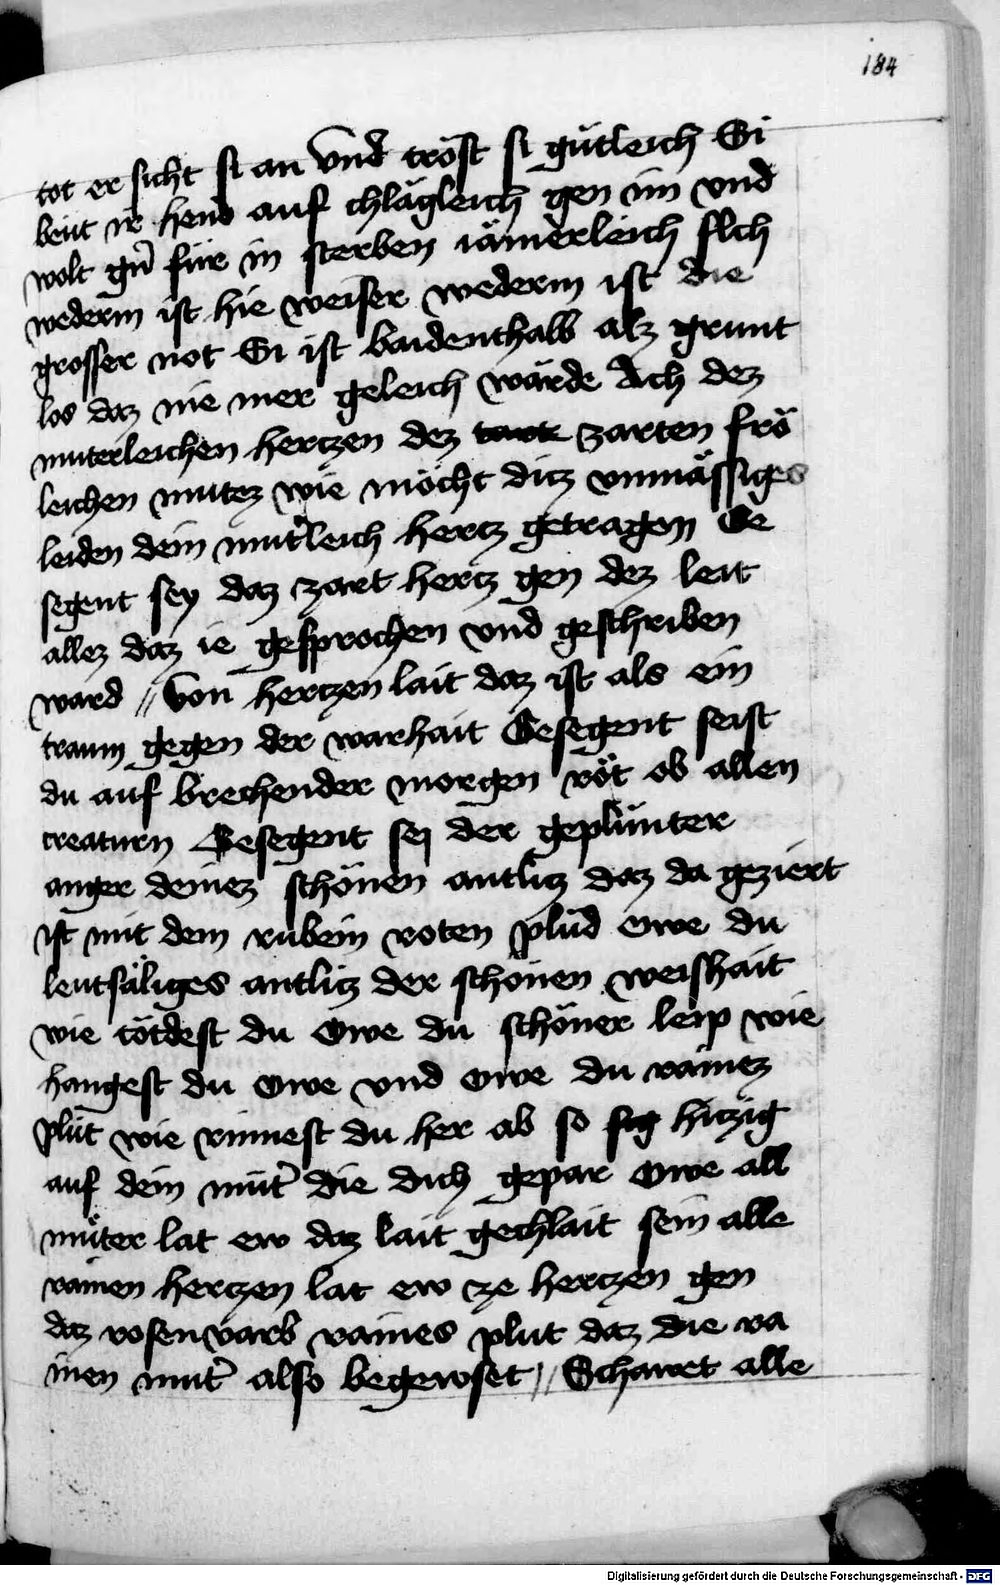 184
tot er sicht si an vnd tröst si gütleich Si
beut ir hend auf chlägleich gen im vnd
wolt gern für in sterben iämerleich sich
wederm ist hie weiser wederm ist die
grosser not Si ist baidenthalb alz grunt
los daz nie mer geleich würde Ach dez
muterleichen hertzen dez zarten frö
leichen mutez wie möcht ditz vnmässiges
leiden dein muterleich hertz getragen Ge
segent sey daz zart hertz gen dez leit
allez daz ie gesprochen vnd geschriben
ward // Von hertzen lait daz ist als ein
traum gegen der warhait Gesegent seist
du auf brechender morgen röt ob allen
creaturn Gesegent sei der geplümter
anger deinez schönen antlitz daz da geziert
ist mit dem rubein roten plüd Owe du
leutsäliges antlitz der schönen weishait
wie tötdest du Owe du schöner leip wie
hangest du Owe vnd owe du rainez
plüt wie rinnest du her ab so hitzig
auf dein müter die dich gepar Owe all
müter lat ew daz lait gechlait sein alle
rainen hertzen lat ew ze hertzen gen
daz rosenvarb raines plut daz die ra
inen muter also begewset // Schawet alle
Digitalisierung gefördert durch die Deutsche Forschungsgemeinschaft - DFG